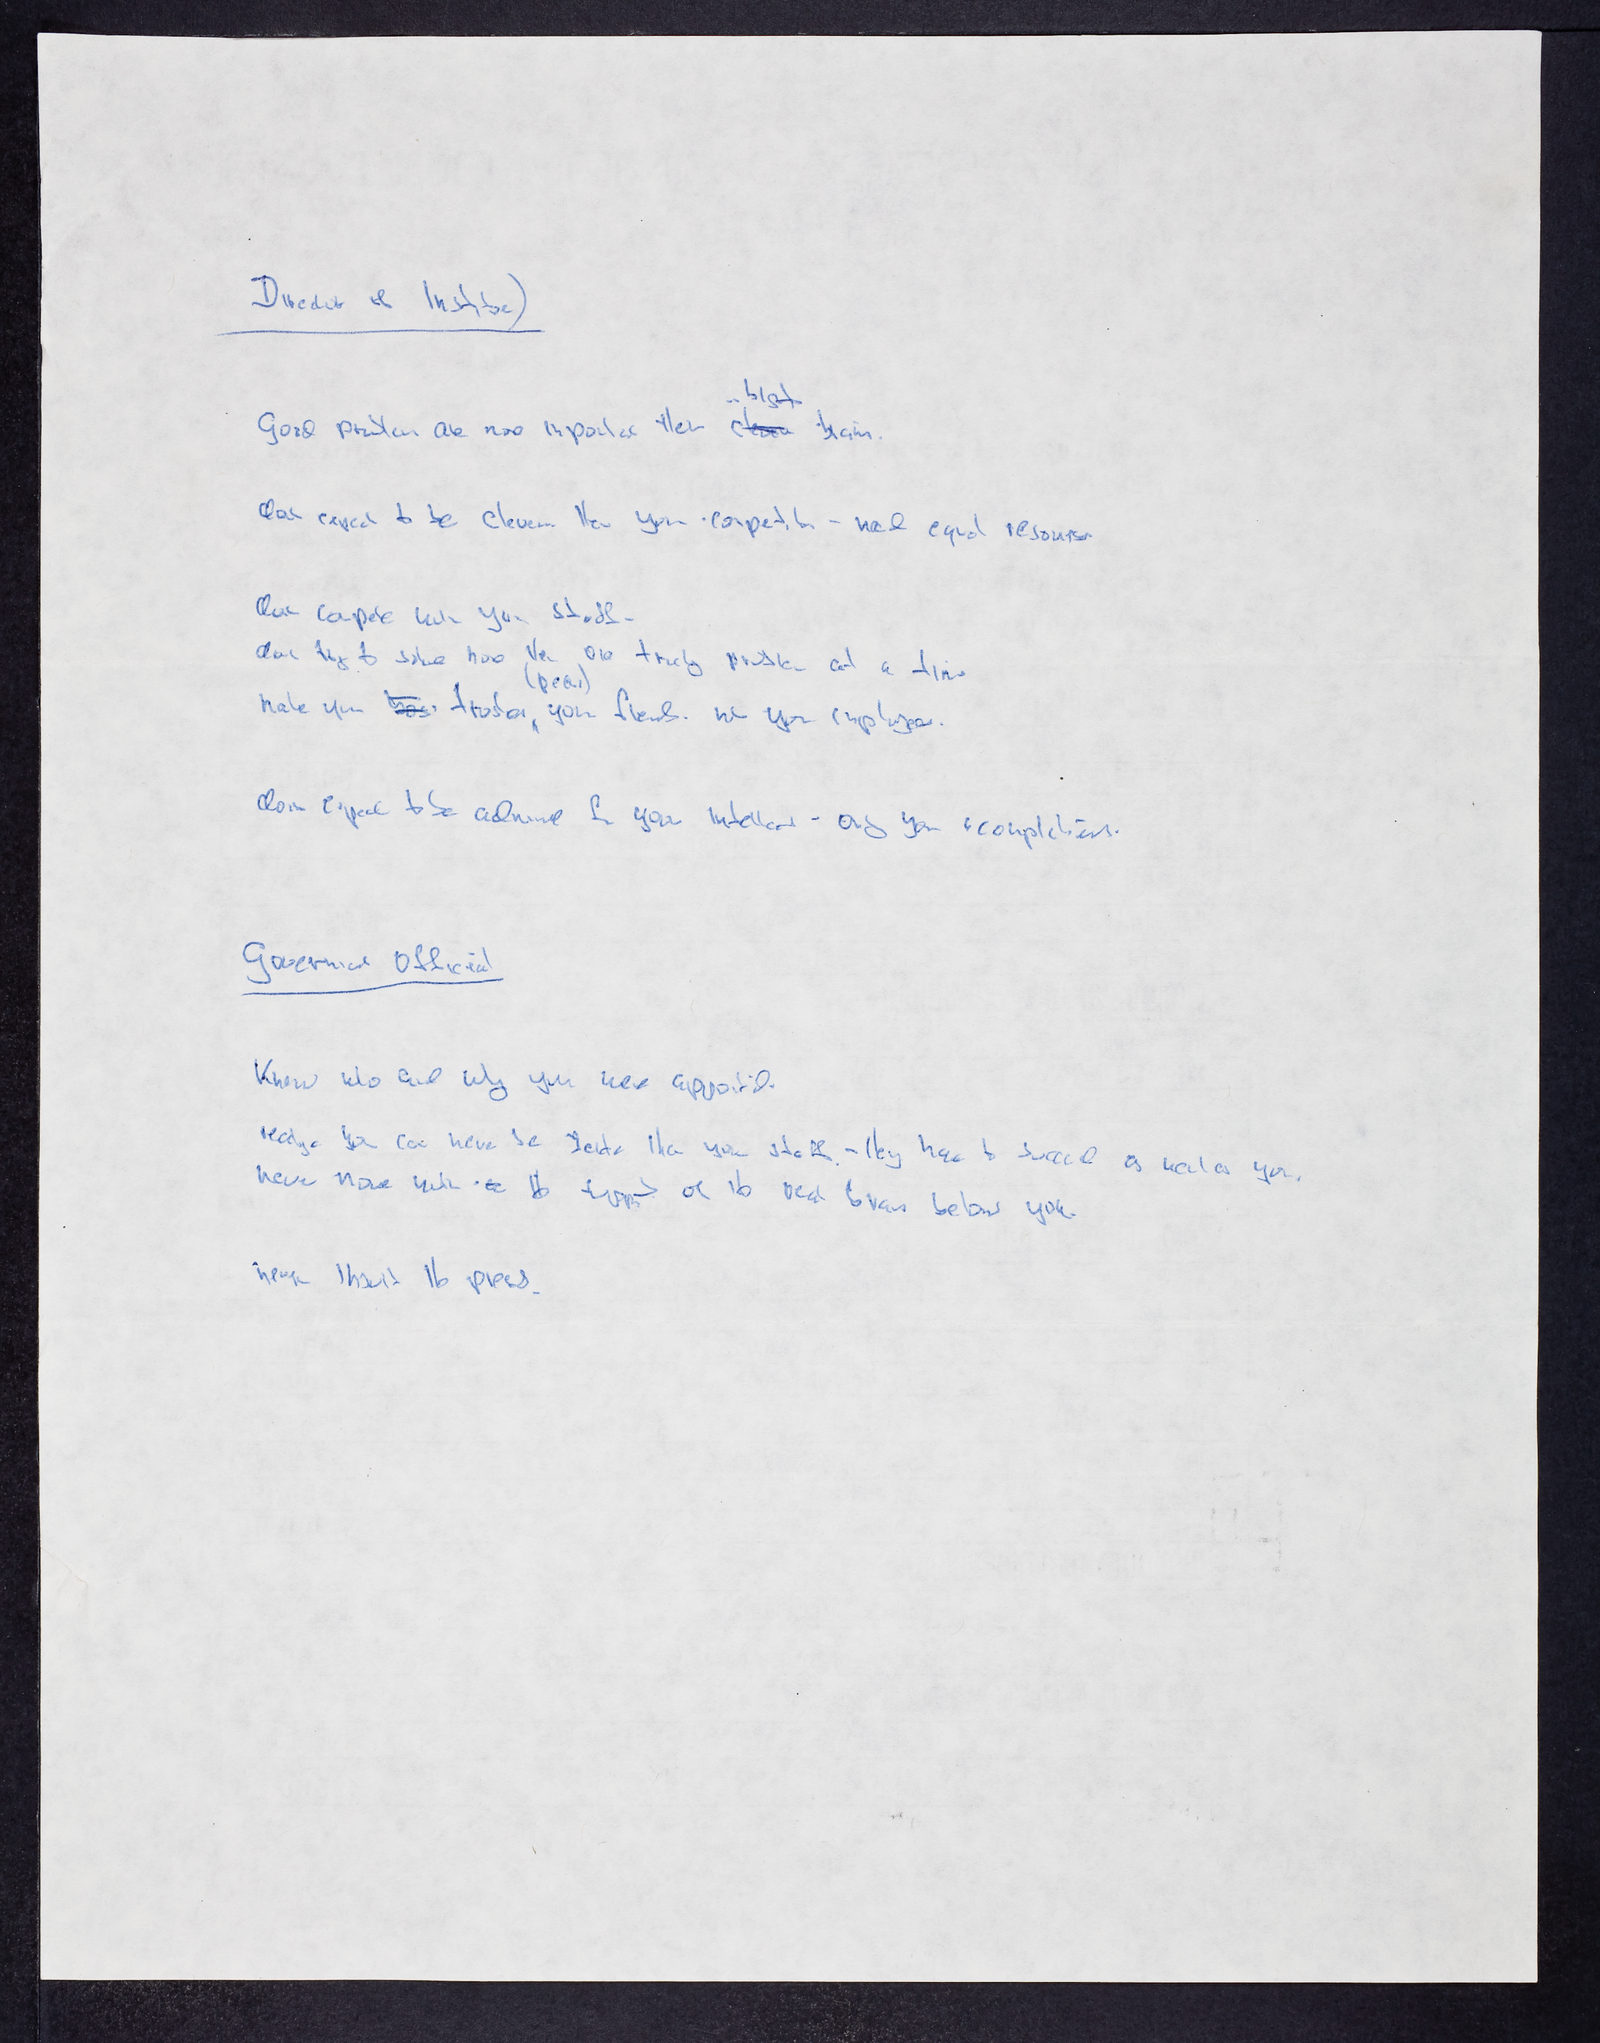 Director of Institute)
Good problems are more important than bright brains.
dont expect to be cleverer than your competitors - need equal resources
dont compete with your staff -
dont try to solve more than one truly problem at a time
(peers)
make your trustees, your friends. not your employees.
dont expect to be admired for your intellect - only your accomplishments.
Government Official
Know who and why you were appointed.
realize you can never be faster than your staff - they have to succeed as well as you.
never move with the support of the real brains below you.
never insult the press.